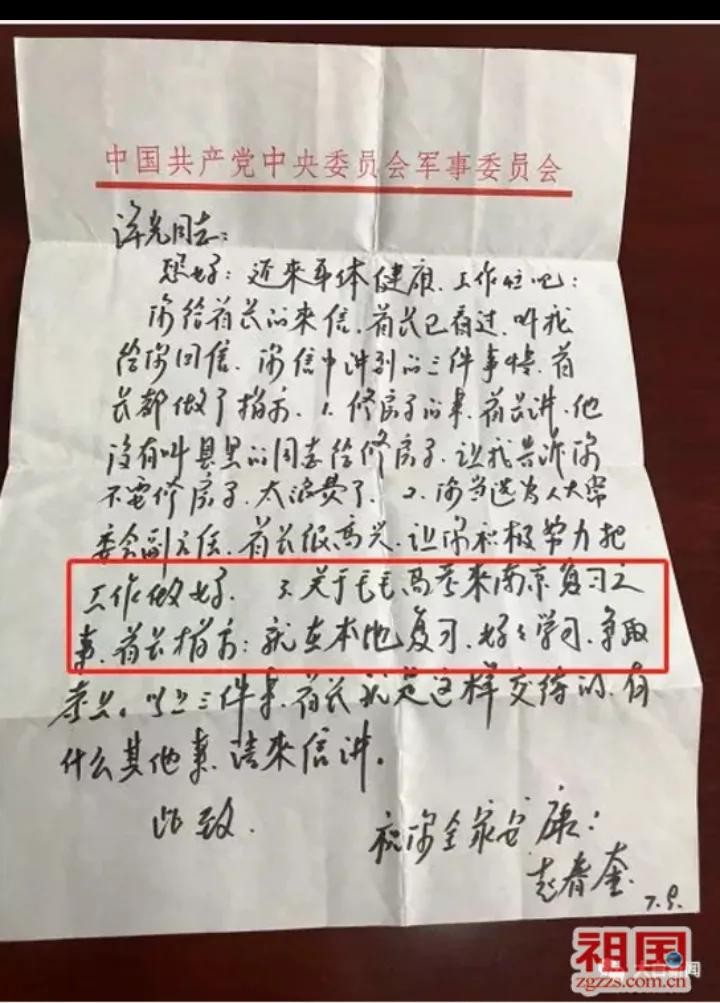 中国共产党中央委员会军事委员会
洋光同志：
您好：近来身体健康、工作忙吧：
你给首长的来信、首长已看过、叫我
给你回信。你信中讲到的三件事情、首
长都做了指示、1.修房子的事、首长讲、他
没有叫县里的同志给修房子、让我告诉你
不要修房子、太浪费了、2.你当选为人大常
委会副主任、首长很高兴、让你积极努力把
工作做好、3.关于毛毛高考来南京复习之
事、首长指示：就在本地复习、好好学习、争取
考上。以上三件事、首长就是这样交待的、有
什么其他事、请来信讲。
此致、
祝你全家安康：
赵春奎
7.9.
祖国
zgzzs.com.cn